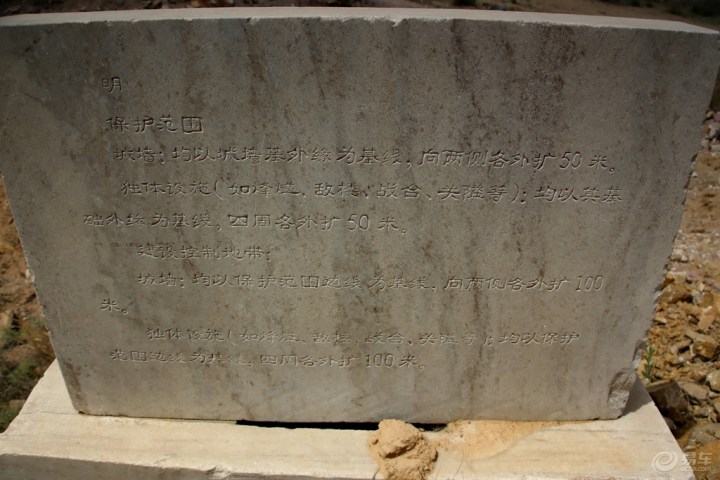 明
保护范围
城墙：均以城墙基外缘为基线，向两侧各外扩50米。
独体设施（如烽燧、敌楼、战台、关隘等）：均以其基
础外缘为基线，四周各外扩50米。
建设控制地带：
城墙：均以保护范围边线为基线，向两侧各外扩100
米。
独体设施（如烽燧、敌楼、战台、关隘等）：均以保护
范围边线为基线，四周各外扩100米。
易车